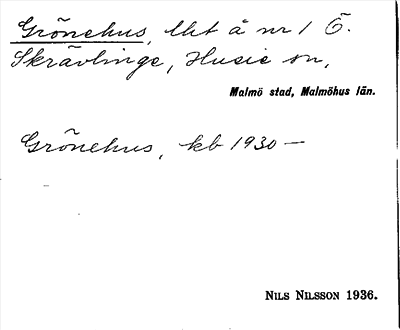 Grönehus, lht å nr 1 Ö.
Skrävlinge, Husie sn,
Malmö stad, Malmöhus län.
Grönehus, kb 1930 —
NILS NILSSON 1936.